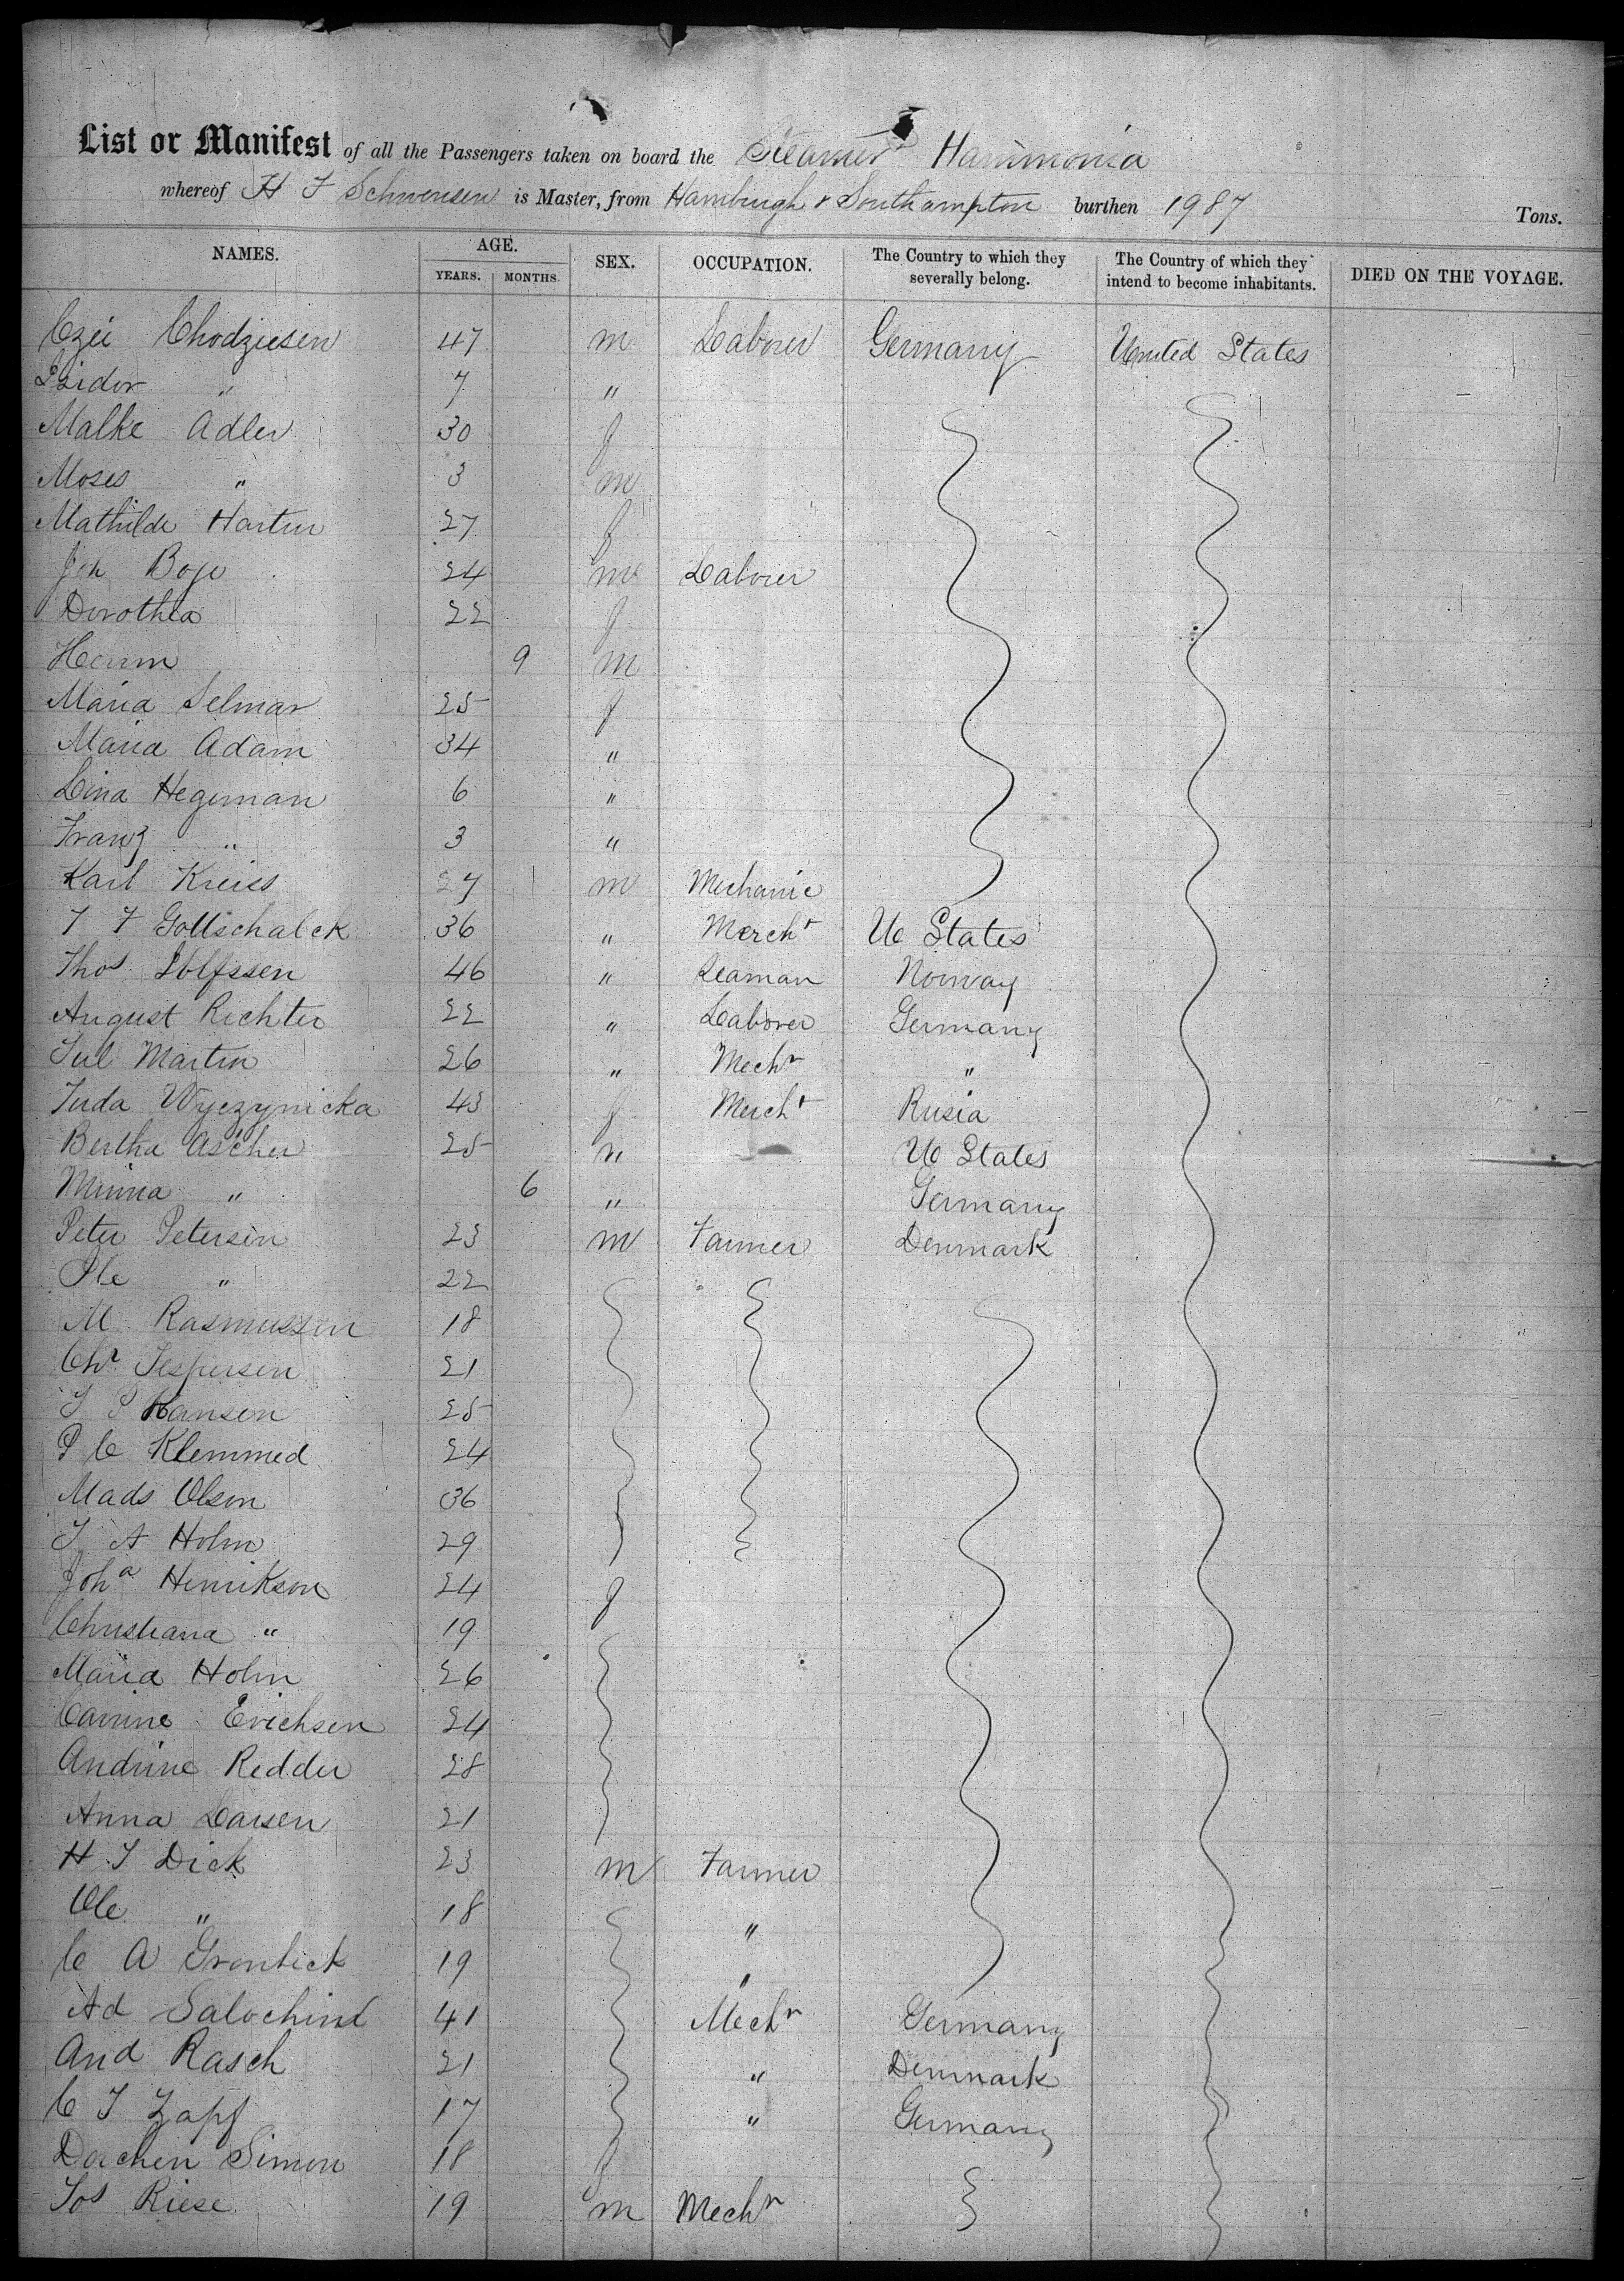 List or Manifest of all the Passengers taken on board the Steamer Hammonia
whereof H F Schwensen is Master, from Hamburgh & Southampton burthen 1987 Tons.
NAMES. AGE. YEARS. MONTHS. SEX. OCCUPATION. The Country to which they severally belong. The Country of which they intend to become inhabitants. DIED ON THE VOYAGE.
Chodziesen 47 m Laborer Germany United States
Isidor " 7 "
Malke Adler 30 f
Moses " 3 m
Mathilde Harter 27 f
Joh Boje 24 m Laborer
Dorothea 22 f
Herm 9 m
Maria Selmar 25 f
Maria Adam 34 "
Lina Hegeman 6 "
Franz " 3 "
Karl Kreiss 27 m Mechanic
Gottschalck 36 " Mercht U States
Thos 46 " Seaman Norway
August Richter 22 " Laborer Germany
Jul Martin 26 " Mechn "
Juda Wyczynicka 43 f Mercht Rusia
Bertha Ascher 25 " U States
Minna " 6 " Germany
Peter Petersen 23 m Farmer Denmark
Ole " 22
M Rasmussen 18
Chr Jespersen 21
J P Hansen 25
P C Klemmed 24
Mads Olson 36
J A Holm 29
Joha Henrikson 24 f
Christiana " 19
Maria Holm 26
Carrine Erichsen 24
Andrine Redder 28
Anna Larsen 21
H J Dick 23 m Farmer
Ole " 18 "
C A 19 "
Ad 41 Mechn Germany
And Rasch 21 " Denmark
C J Zapf 17 " Germany
Dorchen Simon 18 f
Jos Riese 19 m Mechn